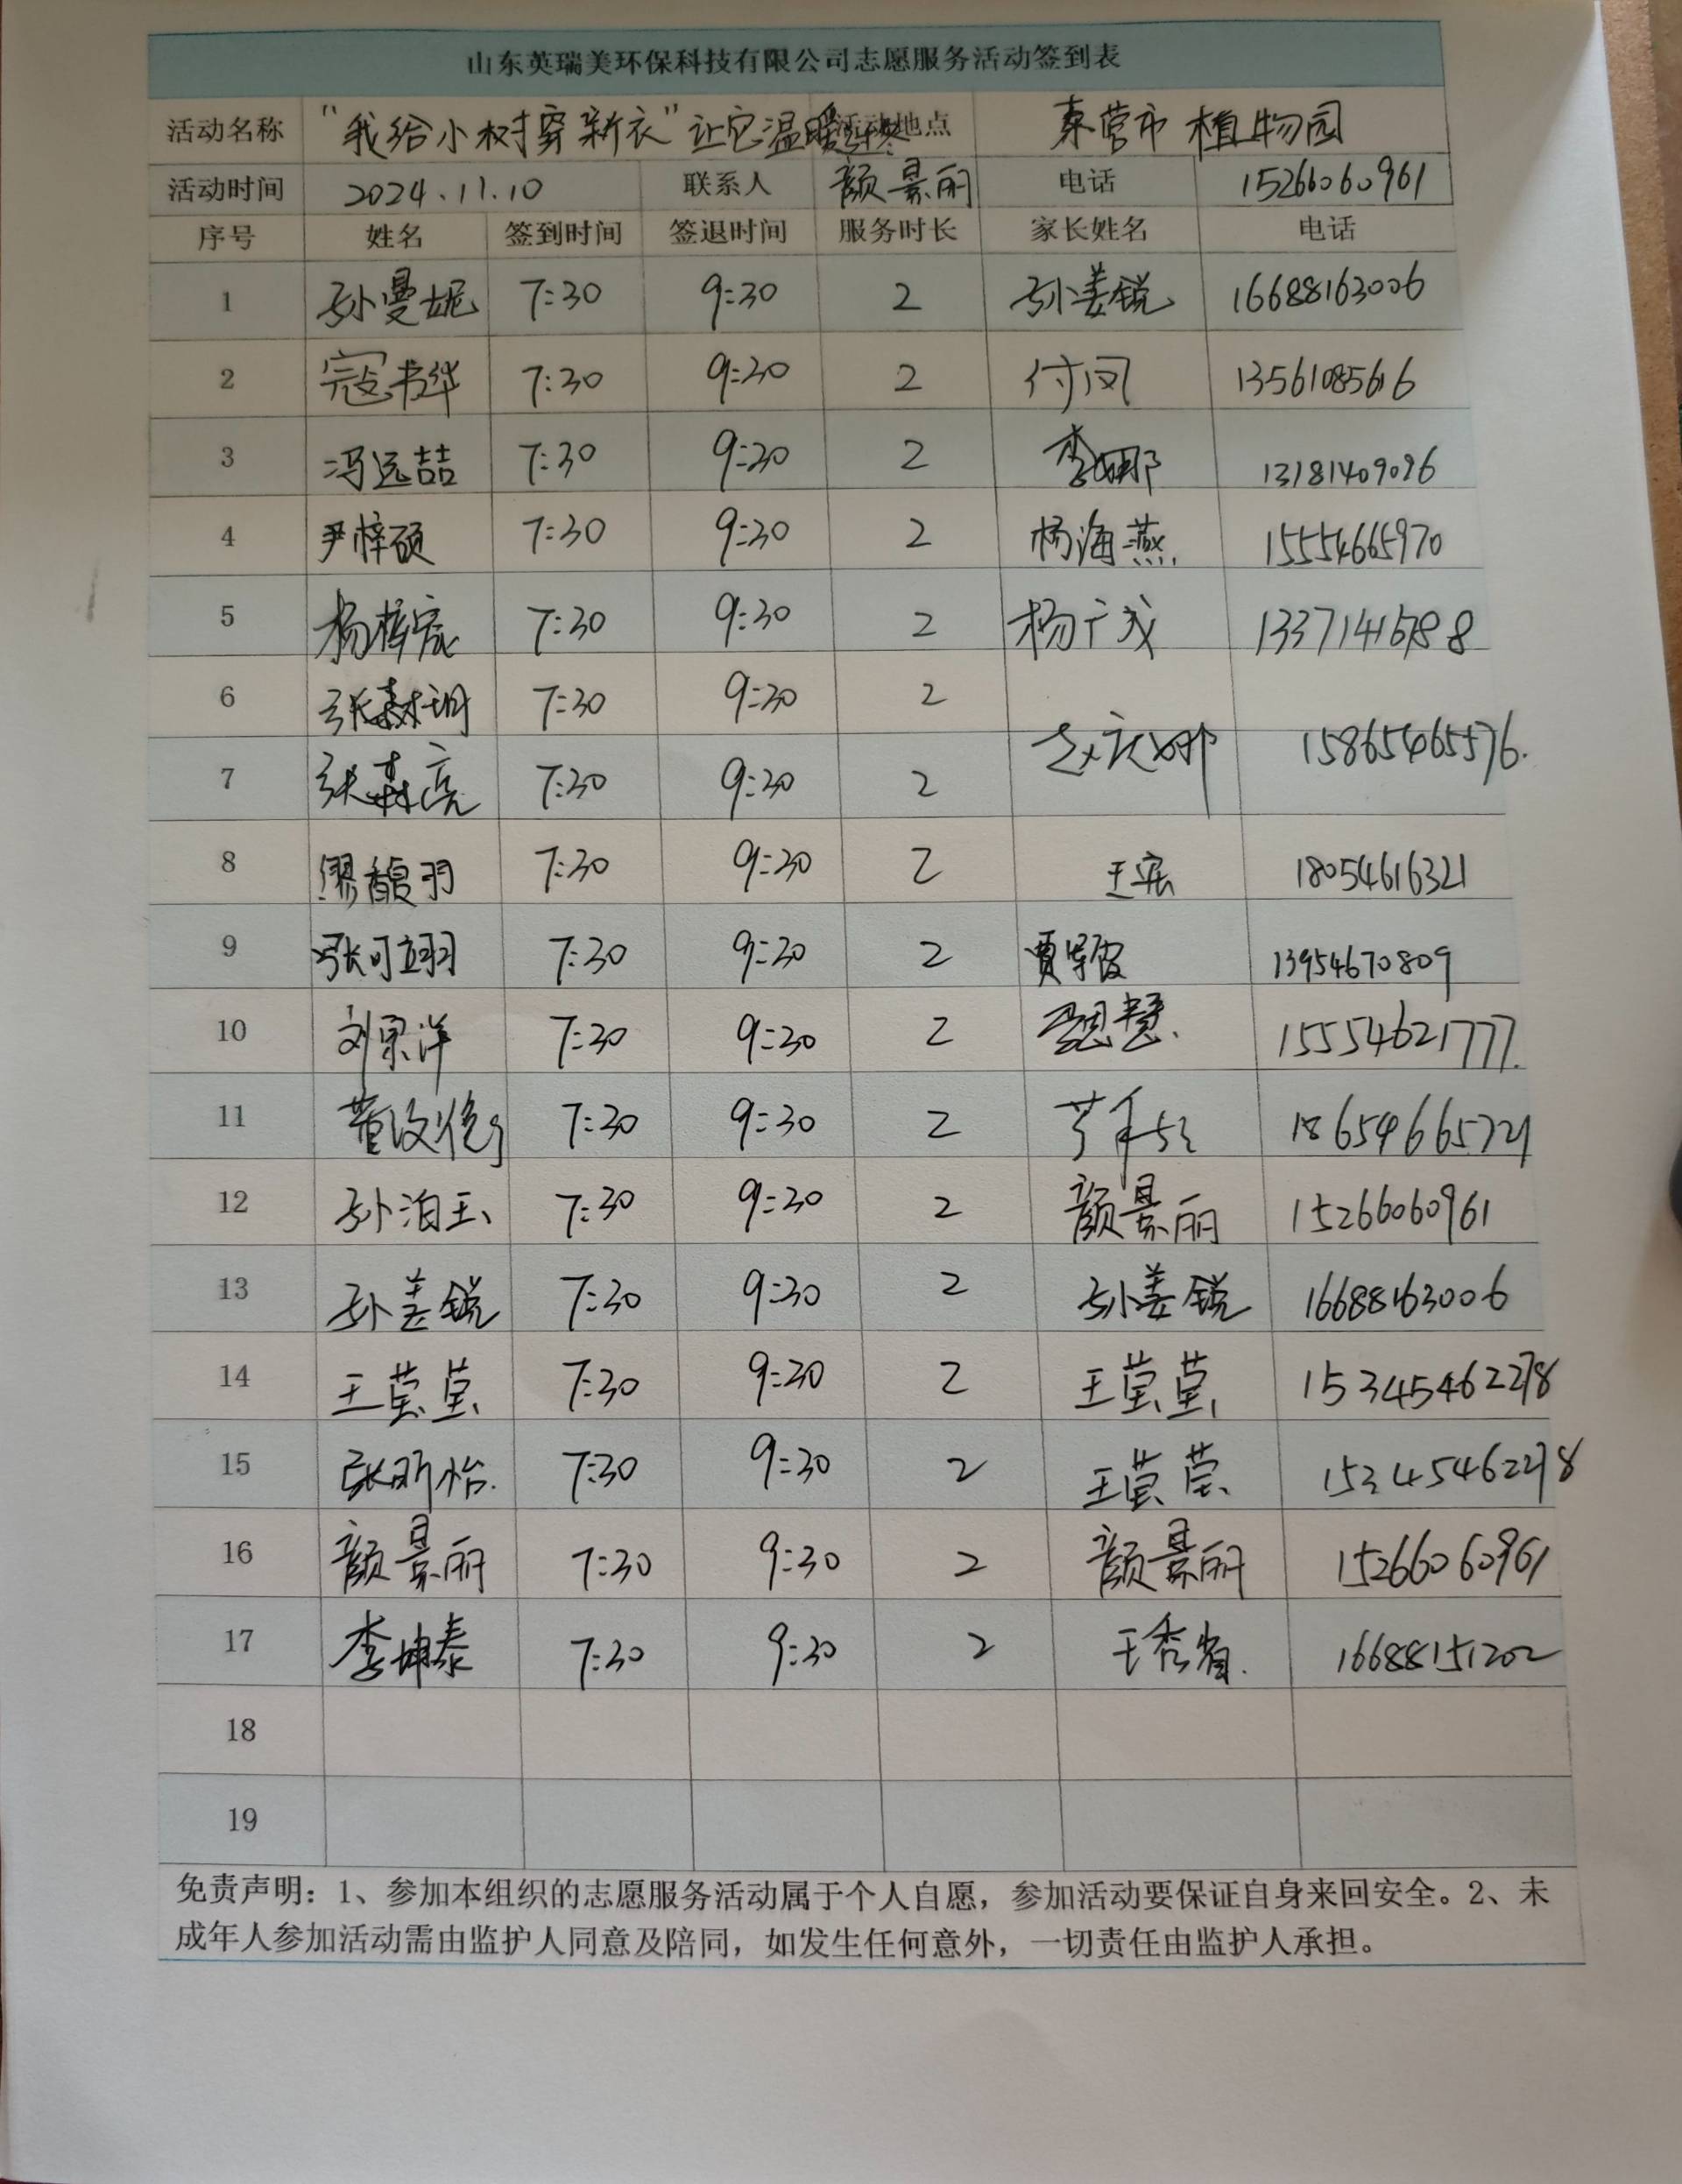 山东英瑞美环保科技有限公司志愿服务活动签到表
活动名称 "我给小树穿新衣"让它温暖过冬 活动地点 东营市植物园
活动时间 2024.11.10 联系人 颜景丽 电话 15266060961
序号 姓名 签到时间 签退时间 服务时长 家长姓名 电话
1 孙曼妮 7:30 9:30 2 孙姜锐 16688163006
2 寇书华 7:30 9:30 2 付凤 13561085616
3 冯远喆 7:30 9:30 2 李娜 13181409096
4 尹梓硕 7:30 9:30 2 杨海燕 15554665970
5 杨梓宸 7:30 9:30 2 杨广成
6 张森玥 7:30 9:30 2
7 张森亮 7:30 9:30 2 15865465576.
8 缪馥羽 7:30 9:30 2 王宏 18054616321
9 张可翊 7:30 9:30 2 贾 13954670809
10 刘宗洋 7:30 9:30 2 15554621777.
11 董 7:30 9:30 2 18654665721
12 孙泊玉 7:30 9:30 2 颜景丽 15266060961
13 孙姜锐 7:30 9:30 2 孙姜锐 16688163006
14 王莹莹 7:30 9:30 2 王莹莹 15345462278
15 张昕怡. 7:30 9:30 2 王莹莹 15345462278
16 颜景丽 7:30 9:30 2 颜景丽 15266060961
17 李坤泰 7:30 9:30 2 16688151202
18
19
免责声明：1、参加本组织的志愿服务活动属于个人自愿，参加活动要保证自身来回安全。2、未
成年人参加活动需由监护人同意及陪同，如发生任何意外，一切责任由监护人承担。